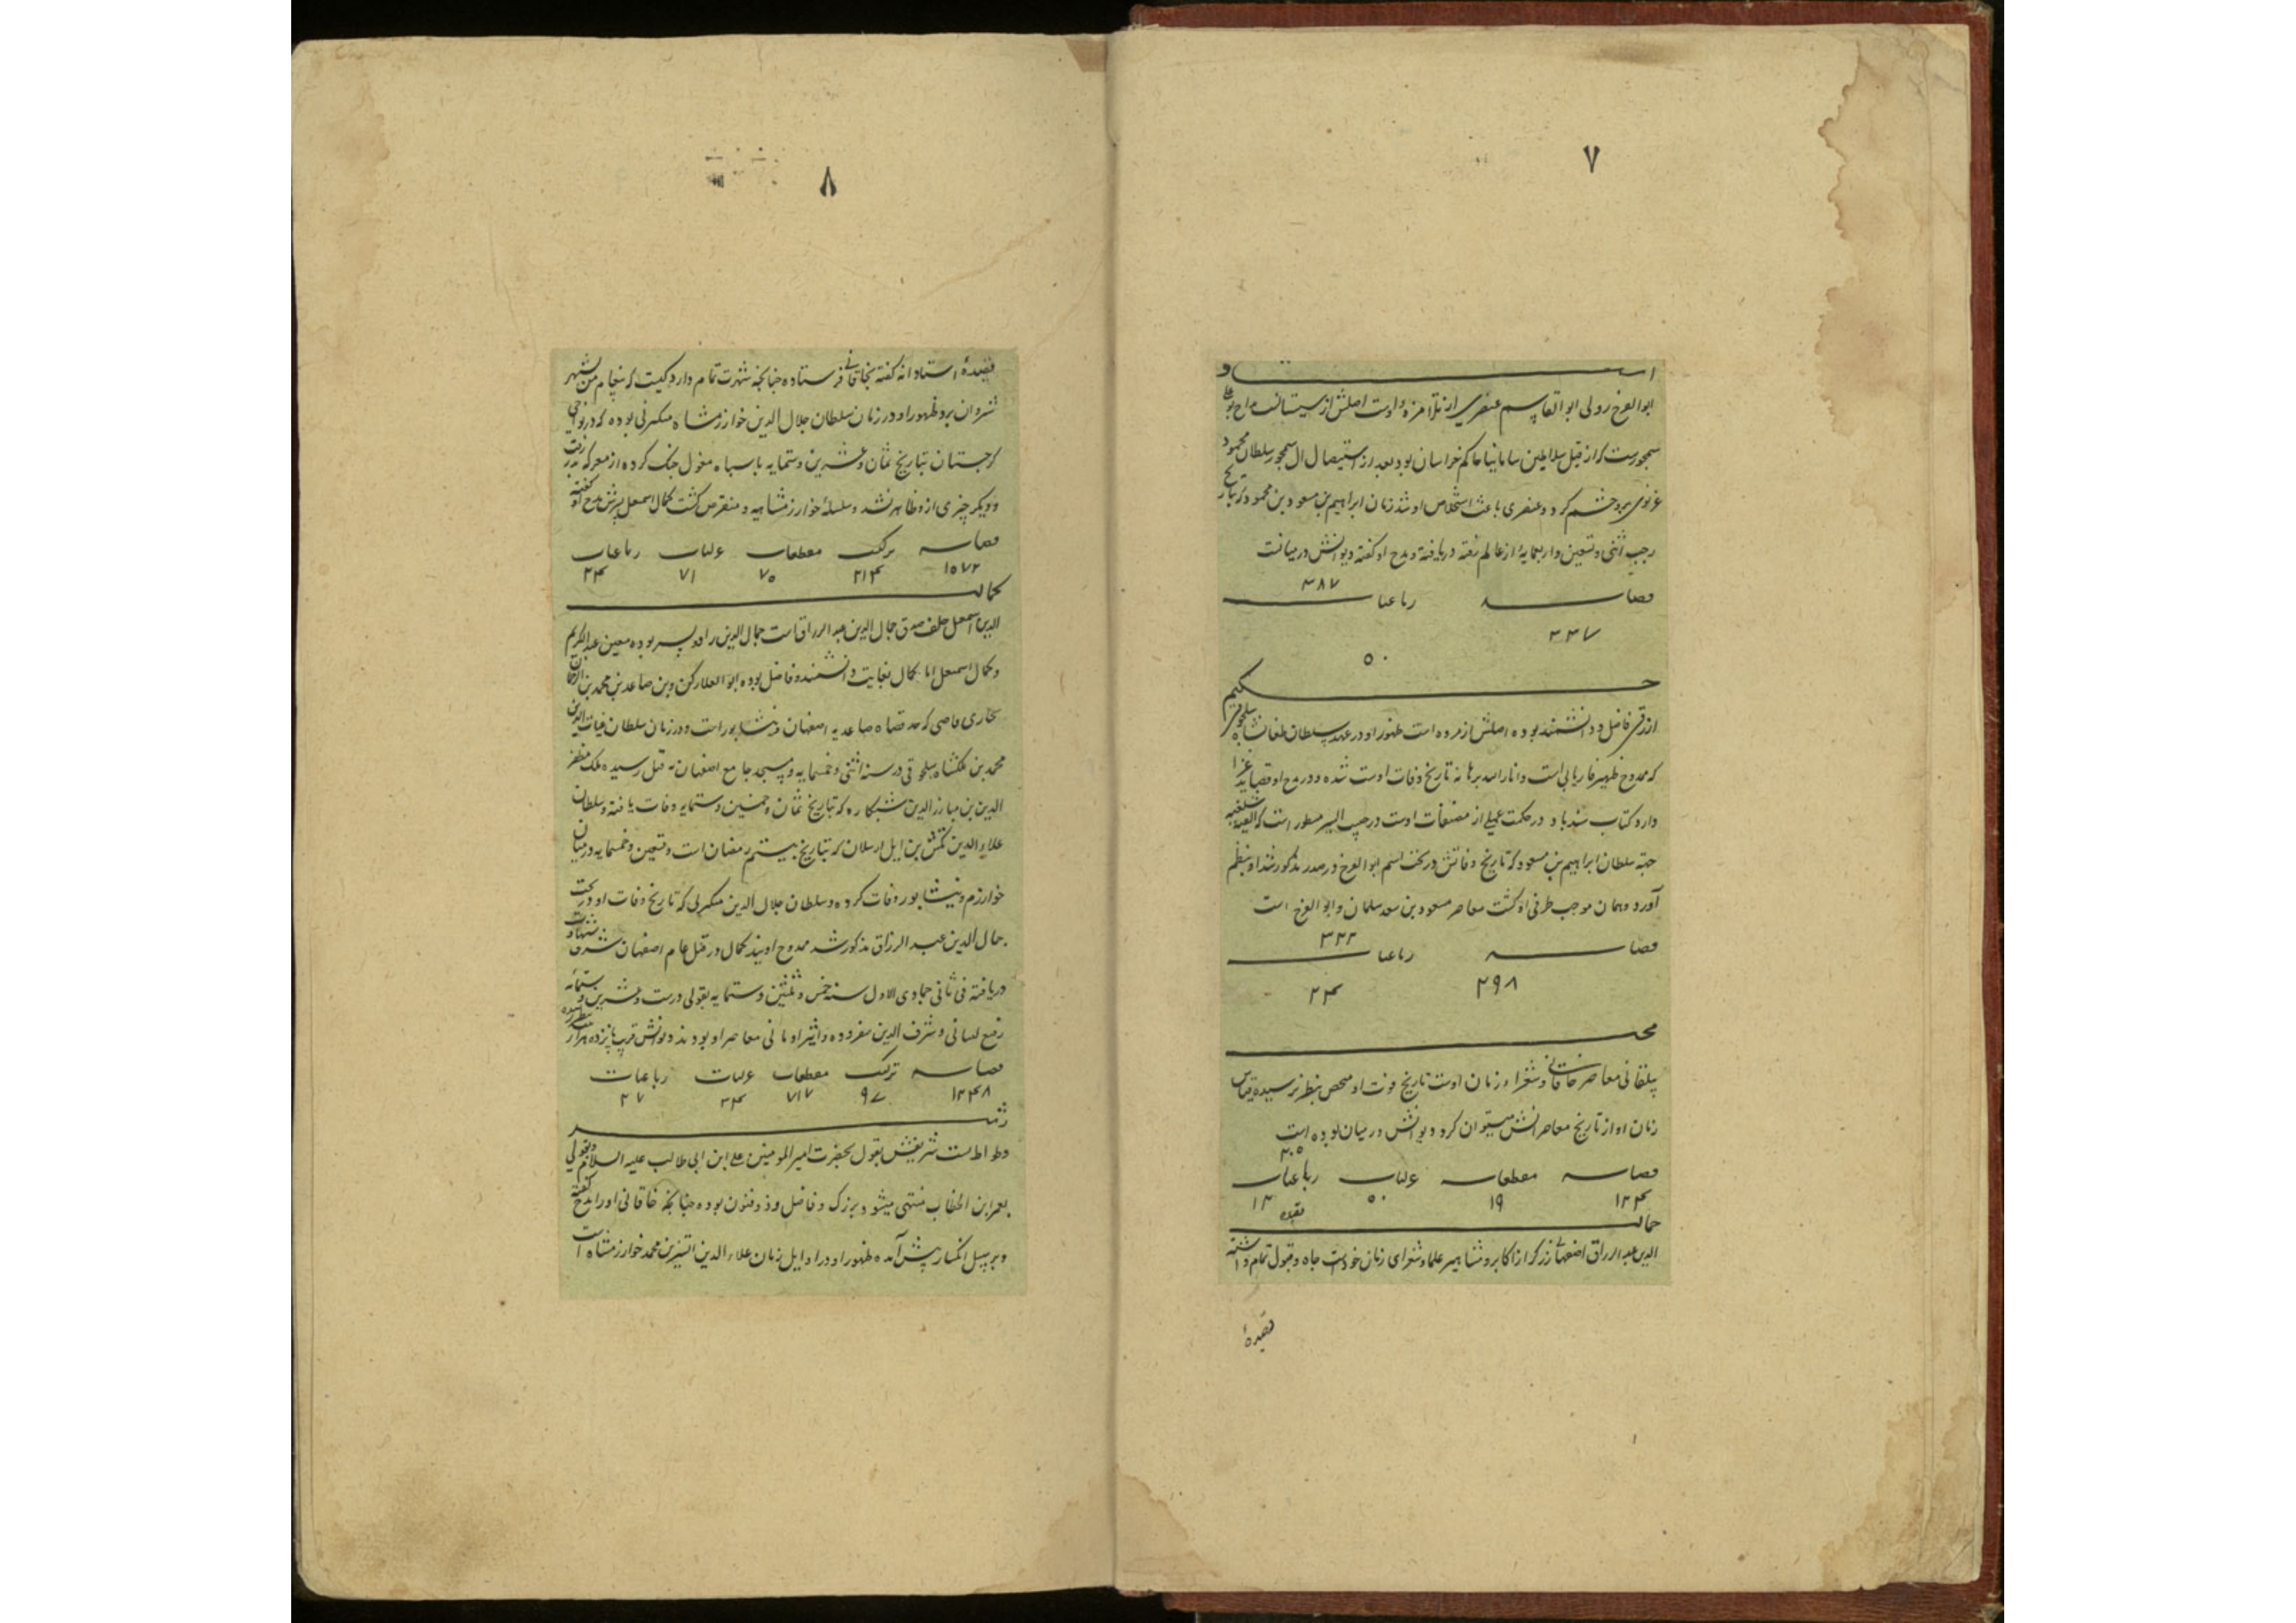 ٧
استاد
ابوالفرخ رولی ابوالقاسم عنصری از تلامزه اوست اصلش از سیستانست مداح بو علی
سمجورست که از قبل سلاطین سامانیا حاکم خراسان بود بعد از استیصال ال سمجور سلطان محمود
غزنوی برو خشم کرد و عنصری باعث استخلاص او شد زمان ابراهیم بن مسعود بن محمود که بتاریخ
رجب اثنی و تسعین و اربعمایة از عالم رفته دریافته و مدح او کفته دیوانش در میانست
٣٨٧
قصا رباعیا
٣٣٧
٥٠
حکیم
ازرقی فاضل و دانشمند بوده اصلش از مروه است ظهور او در عهد سلطان طغانشاه سلجوقی
که ممدوح ظهیر فاریابی است و انار الله برهانه تاریخ وفات اوست شده و در مدح او قصاید غرا
دارد کتاب سندباد و در حکمت عملی از مصنفات اوست در حبیب السیر مسطور است که الفیه شلفیه
جهة سلطان ابراهیم بن مسعود که تاریخ وفاتش در تحت اسم ابوالفرخ در صدر مذکور شد او بنظم
آورد و همان موجب طرفی او کشت معاصر مسعود بن سعد سلمان و ابوالفرخ است
٣٢٢
قصا رباعیا
٢٩٨
٢۴
مجیر
بیلقانی معاصر خاقانی و شعراء زمان اوست تاریخ فوت او مشخص بنظر نرسیده قیاس
زمان او از تاریخ معاصرانش میتوان کرد دیوانش در میان بوده است
قصا مقطعات غزلیات رباعیات
١٢٣۴ ١٩ ٥٠ ١٣
جمال
الدین عبدالرزاق اصفهانی زرکر از اکابر و مشاهیر علما و شعرای زمان خودست جاه و قبول تمام داشته
قصیدهٔ
٨
قصیدهٔ استادانه کفته بخاقانی فرستاده چنانچه شهرت تمام دارد کیست که پیغام من بشهر
شروان برد ظهور او در زمان سلطان جلال الدین خوارزمشاه منکبرنی بوده که در نواحی
کرجستان بتاریخ ثمان و عشرین و ستمایه با سپاه مغول جنک کرده از معرکه بدر رفت
و دیکر چیزی ازو ظاهر نشد و سلسلهٔ خوارزمشاهیه منقرض کشت کمال اسمعیل پسرش مدح او کفته
قصا ترکیب مقطعات غزلیات رباعیات
١٥٧٢ ٢١۴ ٧٥ ٧١ ٢۴
کمال
الدین اسمعیل خلف صدق جمال الدین عبدالرزاق است جمال الدین را دو پسر بوده معین عبدالکریم
و کمال اسمعیل اما کمال بغایت دانشمند و فاضل بوده ابوالعلا رکن دین صاعد بن محمد بن
بخاری قاضی که جد قضاة صاعدیه اصفهان و نشابور است و در زمان سلطان غیاث الدین
محمد بن ملکشاه سلجوقی در سنه اثنی و خمسمایه در مسجد جامع اصفهان به قتل رسیده ملک مظفر
الدین بن مبارزالدین شبنکاره که بتاریخ ثمان و خمسین و ستمایه وفات یافته و سلطان
علاءالدین تکش بن ایل ارسلان که بتاریخ بیستم رمضان ست و تسعین و خمسمایه در میان
خوارزم و نیشابور وفات کرده و سلطان جلال الدین منکبرنی که تاریخ وفات او در تحت
جمال الدین عبدالرزاق مذکور شد ممدوح اویند کمال در قتل عام اصفهان شرف شهادت
دریافته فی ثانی جمادی الاول سنه خمس و ثلثین و ستمایه بقولی در ست و عشرین و ستمائه
رفیع لنبانی و شرف الدین سفروده و اثیر اومانی معاصر او بودند دیوانش قریب پانزده هزار
قصا ترکیب مقطعات غزلیات رباعیات
١٣۴٨ ٩٧ ٧١٧ ٣۴ ٢٧
رشید
وطواط نسب شریفش بقول بحضرت امیرالمومنین علی ابن ابی طالب علیه السلام و بقولی
بعمر ابن الخطاب منتهی میشود بزرک و فاضل و ذوفنون بوده چنانچه خاقانی او را مدح کفته
و بر سبیل انکسار پیش آمده ظهور او در اوایل زمان علاءالدین اتسز بن محمد خوارزمشاه است